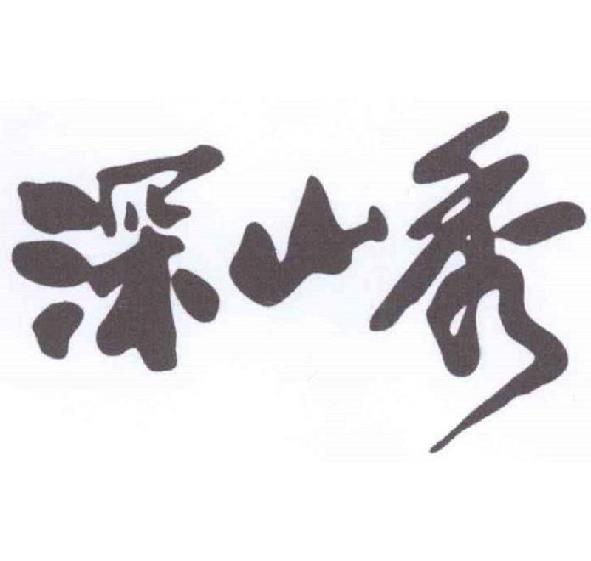 深山秀